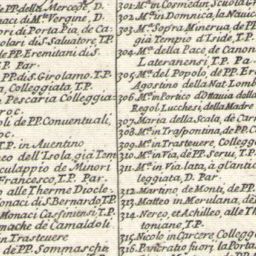 e PP. della Mercede, D.
di M.ª Vergine, D.
ori di Porta Pia, de Ca
olari di S. Salvatore, T.P
de PP. Eremitani di S.
T. Par.
PP. di S. Girolamo, T.P.
a, Collegiata, T.P.
n Pescaria Collegia
roc.
oli de PP. Conventuali,
roc.
T.P. in Auentino
neo dell'Isola, già Tem
sculappio de Minori
Francesco, T.P. Par.
o alle Therme Diocle
onaci di S. Bernardo, T.P.
Monaci Casinensi, T.P.
mache de Camaldoli
in Trasteuere
di PP. Sommaschi
301. M.ª in Cosmedin, Scuola G
302. M.ª in Domnica, la Nauic
303. M.ª Sopra Minerua, de PP
gia Tempio d'Iside, T.P.
304. M.ª della Pace, de Canon
Lateranensi T. Par.
305. M.ª del Popolo, de PP. Er
Agostino della Nat. Lomb
306. M.ª in Portico
Regol. Lucchesi, della Madre
307. Maria della Scala, de Car
308. M.ª in Traspontina, de PP. C
309. M.ª in Trasteuere, Colleg
310. M.ª in Via, de PP. Serui, T.P.
311. M.ª in Via lata, à gl'antic
leggiata, D. Par.
312. Martino, de Monti, de PP.
313. Matteo in Merulana, de
314. Nereo, et Achilleo, alle Th
toniane, T.P.
315. Nicolo in Carcere, Colleg
316. Pancratio fuori la Porta